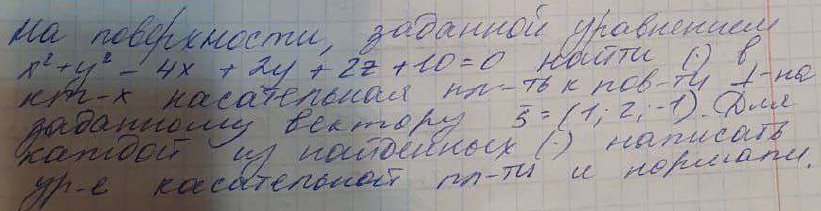 На поверхности, заданной уравнением
x²+y²-4x+2y+2z+10=0 найти (·) в
кот-х касательная пл-ть к пов-ти ⊥-на
заданному вектору s̄=(1;2;-1). Для
каждой из найденных (·) написать
ур-е касательной пл-ти и нормали.